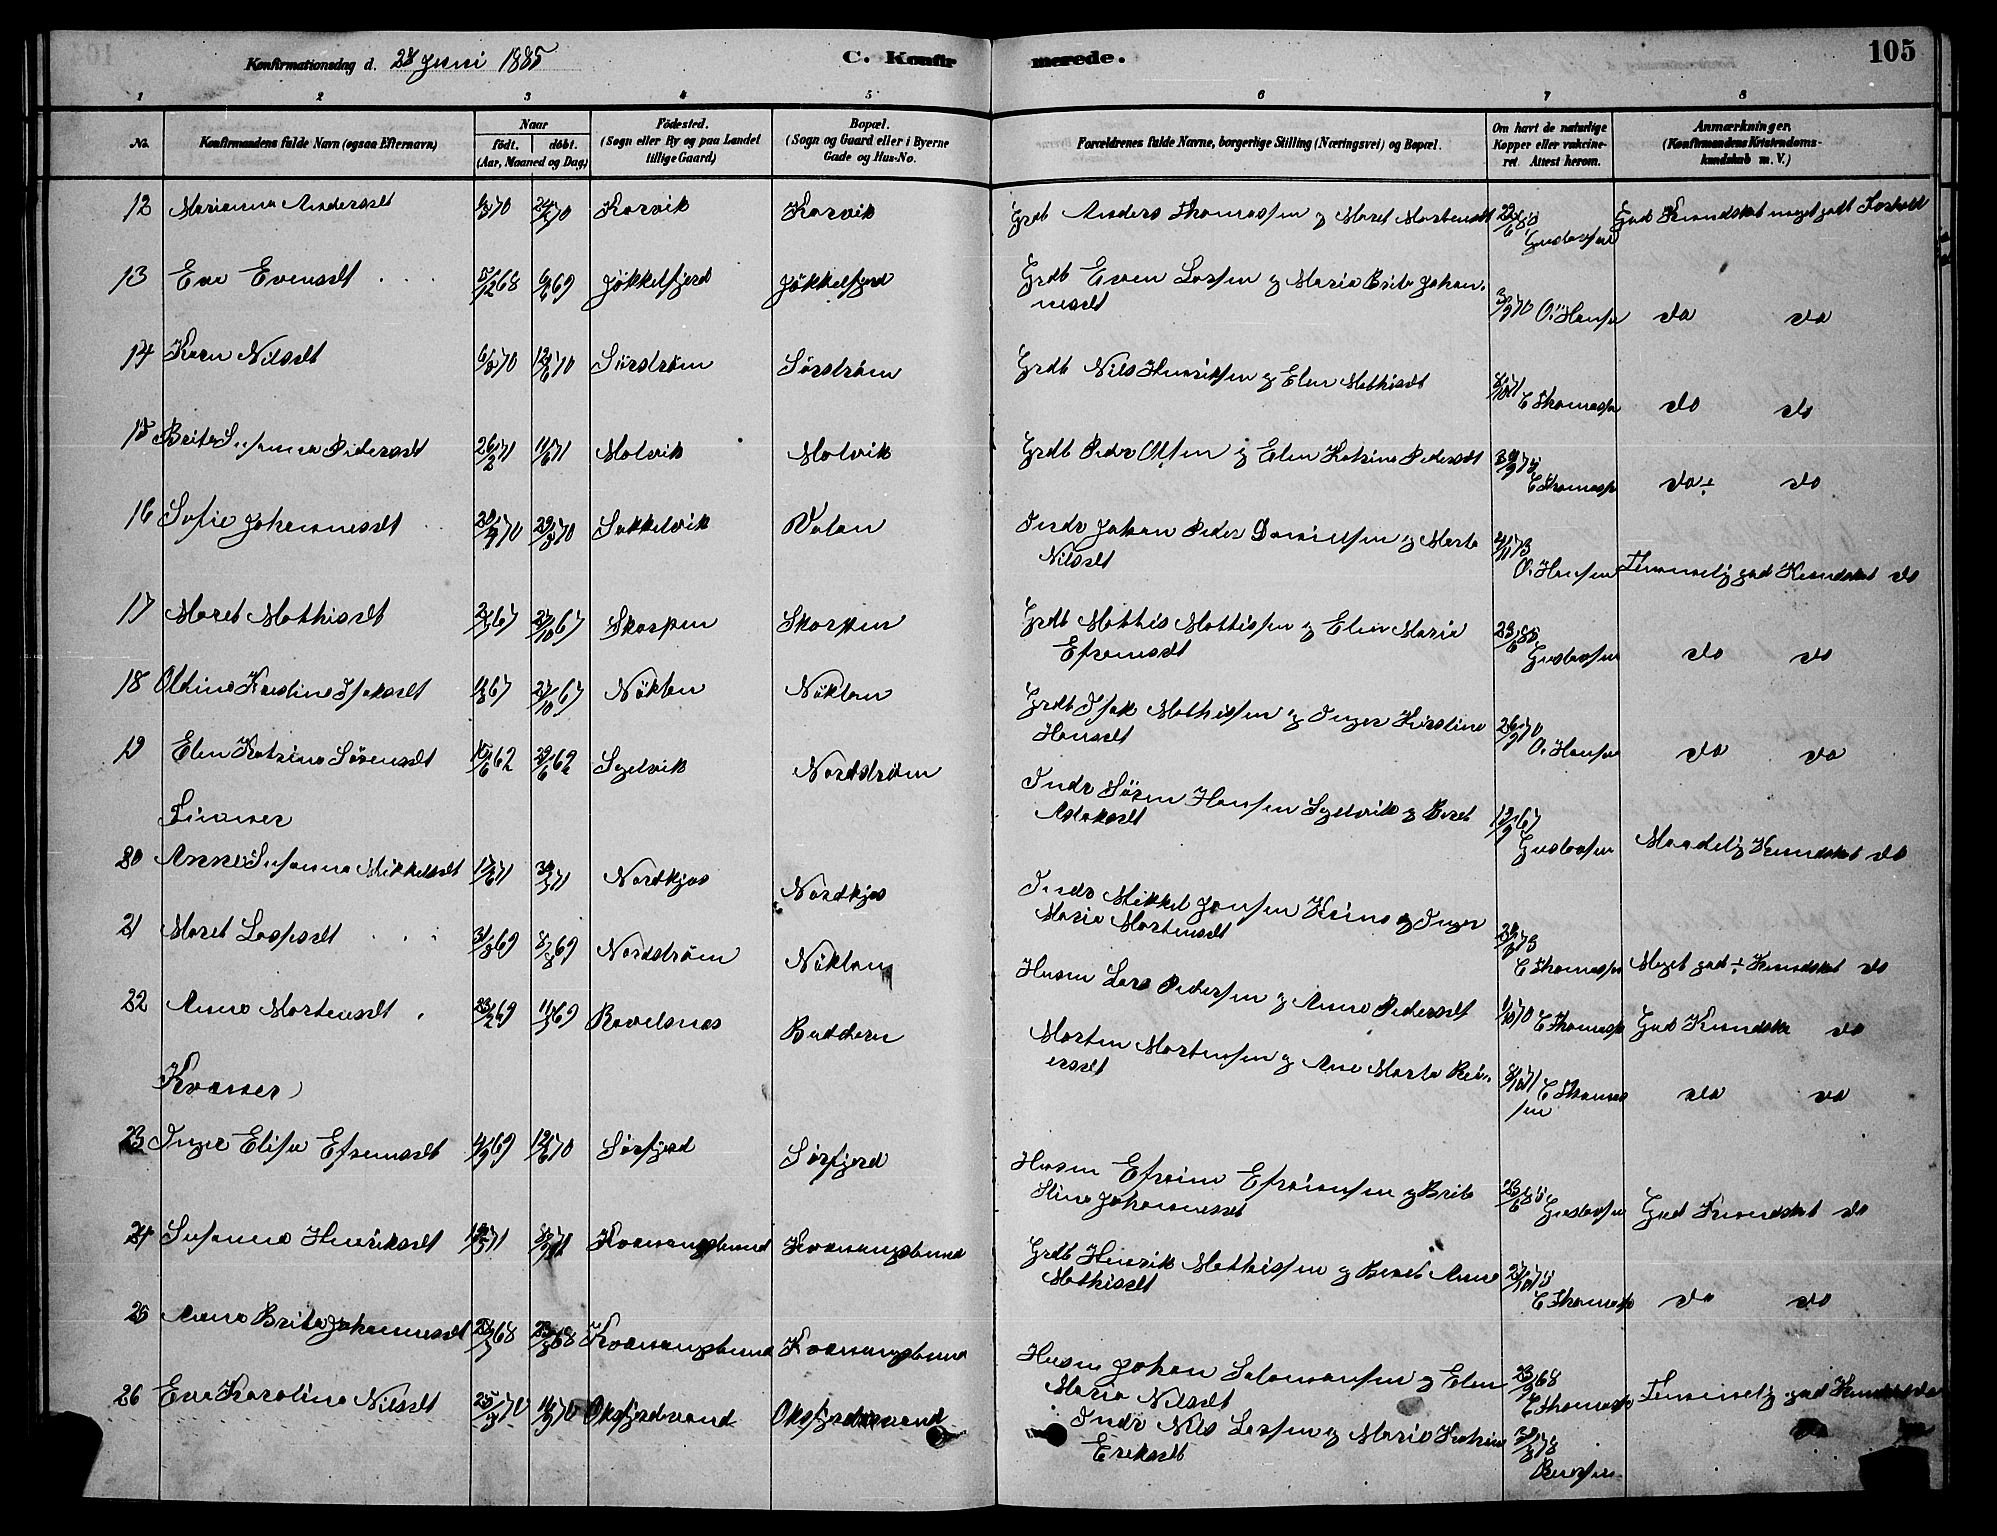 Konfirmationsdag d. 28 Juni 1885
C. Konfirmerede.
105
1 2 3 4 5 6 7 8
No. Konfirmandens fulde Navn (ogsaa Efternavn) Naar født. døbt. (Aar, Maaned og Dag) Fødested. (Sogn eller By og paa Landet tillige Gaard) Bopæl. (Sogn og Gaard eller i Byerne Gade og Hus-No. Forældrenes fulde Navne, borgerlige Stilling (Næringsvei) og Bopæl. Om havt de naturlige Kopper eller vakcineret. Attest herom. Anmærkninger. (Konfirmandens Kristendomskundskab m. V.)
12 Marianna Andersdt Korvik Korvik Grdb Anders Thomassen og Maret Mortensdt Gustavsen God Kundskab meget godt Forhold
13 Eva Evensdt 5/12 68 6/6 69 Jøkkelfjord Jøkkelfjord Grdb Even Larsen og Maria Brita Johannesdt 3/9 70 O. Hansen do do
14 Karn Nilsdt 12/6 70 Sørstrøm Sørstrøm Grdb Nils Henriksen og Elen Mathisdt 8/10 71 C Thomassen do do
15 Brita Susanna Pedersdt 26/2 71 11/6 71 Molvik Molvik Grdb Peder Olsen og Elen Katrina Pedersdt C Thomassen do÷ do
16 Sofie Johannesdt Sakkelvik Valan Indr Johan Peder Danielsen og Marta Nilsdt 4/11 73 O. Hansen Temmelig god Kundskab do
17 Maret Mathisdt 27/10 67 Skorpen Skorpen Grdb Mathis Mathissen og Elen Maria Efremsdt 23/6 85 Gustavsen do do
18 Oldine Kristine Isaksdt 27/10 67 Nøklan Nøklan Grdb Isak Mathissen og Inger Kirstine Hansdt 26/9 70 O. Hansen do do
19 Elen Katrina Sørensdt 29/6 62 Segelvik Nordstrøm Indr Søren Hansen Segelvik og Beret Aslaksdt 12/9 67 Gustavsen Maadelig Kundskab do
Finner
20 Anne Susanna Mikkelsdt 17/6 71 Nordkjos Nordkjos Indr Mikkel Jonsen og Inger Maria Mortensdt C Thomassen Meget god ÷ Kundskab do
21 Maret Larsdt 8/8 69 Nordstrøm Nøklan Husm Lars Pedersen og Anna Pedersdt 1/10 70 C Thomassen God Kundskab do
22 Anna Mortensdt 23/2 69 Ravelsnes Badderen Morten Mortensen og Ane Marta Reiersdt 8/10 71 C Thomassen do do
Kvæner
23 Inger Elisa Efremsdt 4/9 69 12/6 70 Sørfjord Sørfjord Husm Efraim Efraimsen og Brita Stina Johannesdt 23/6 85 Gustavsen God Kundskab do
24 Susanna Henriksdt Kvænangsbund Kvænangsbund Grdb Henrik Mathissen og Beret Anna Mathisdt C Thomassen do do
25 Anna Brita Johannesdt Kvænangsbund Kvænangsbund Husm Johan Salomonsen og Elen Maria Nilsdt 23/9 68 C Thomassen Temmelig god Kundskab do
26 Eva Karolina Nilsdt Oksfjordvand Oksfjordvand Indr Nils Larsen og Maria Katrina Eriksdt do do